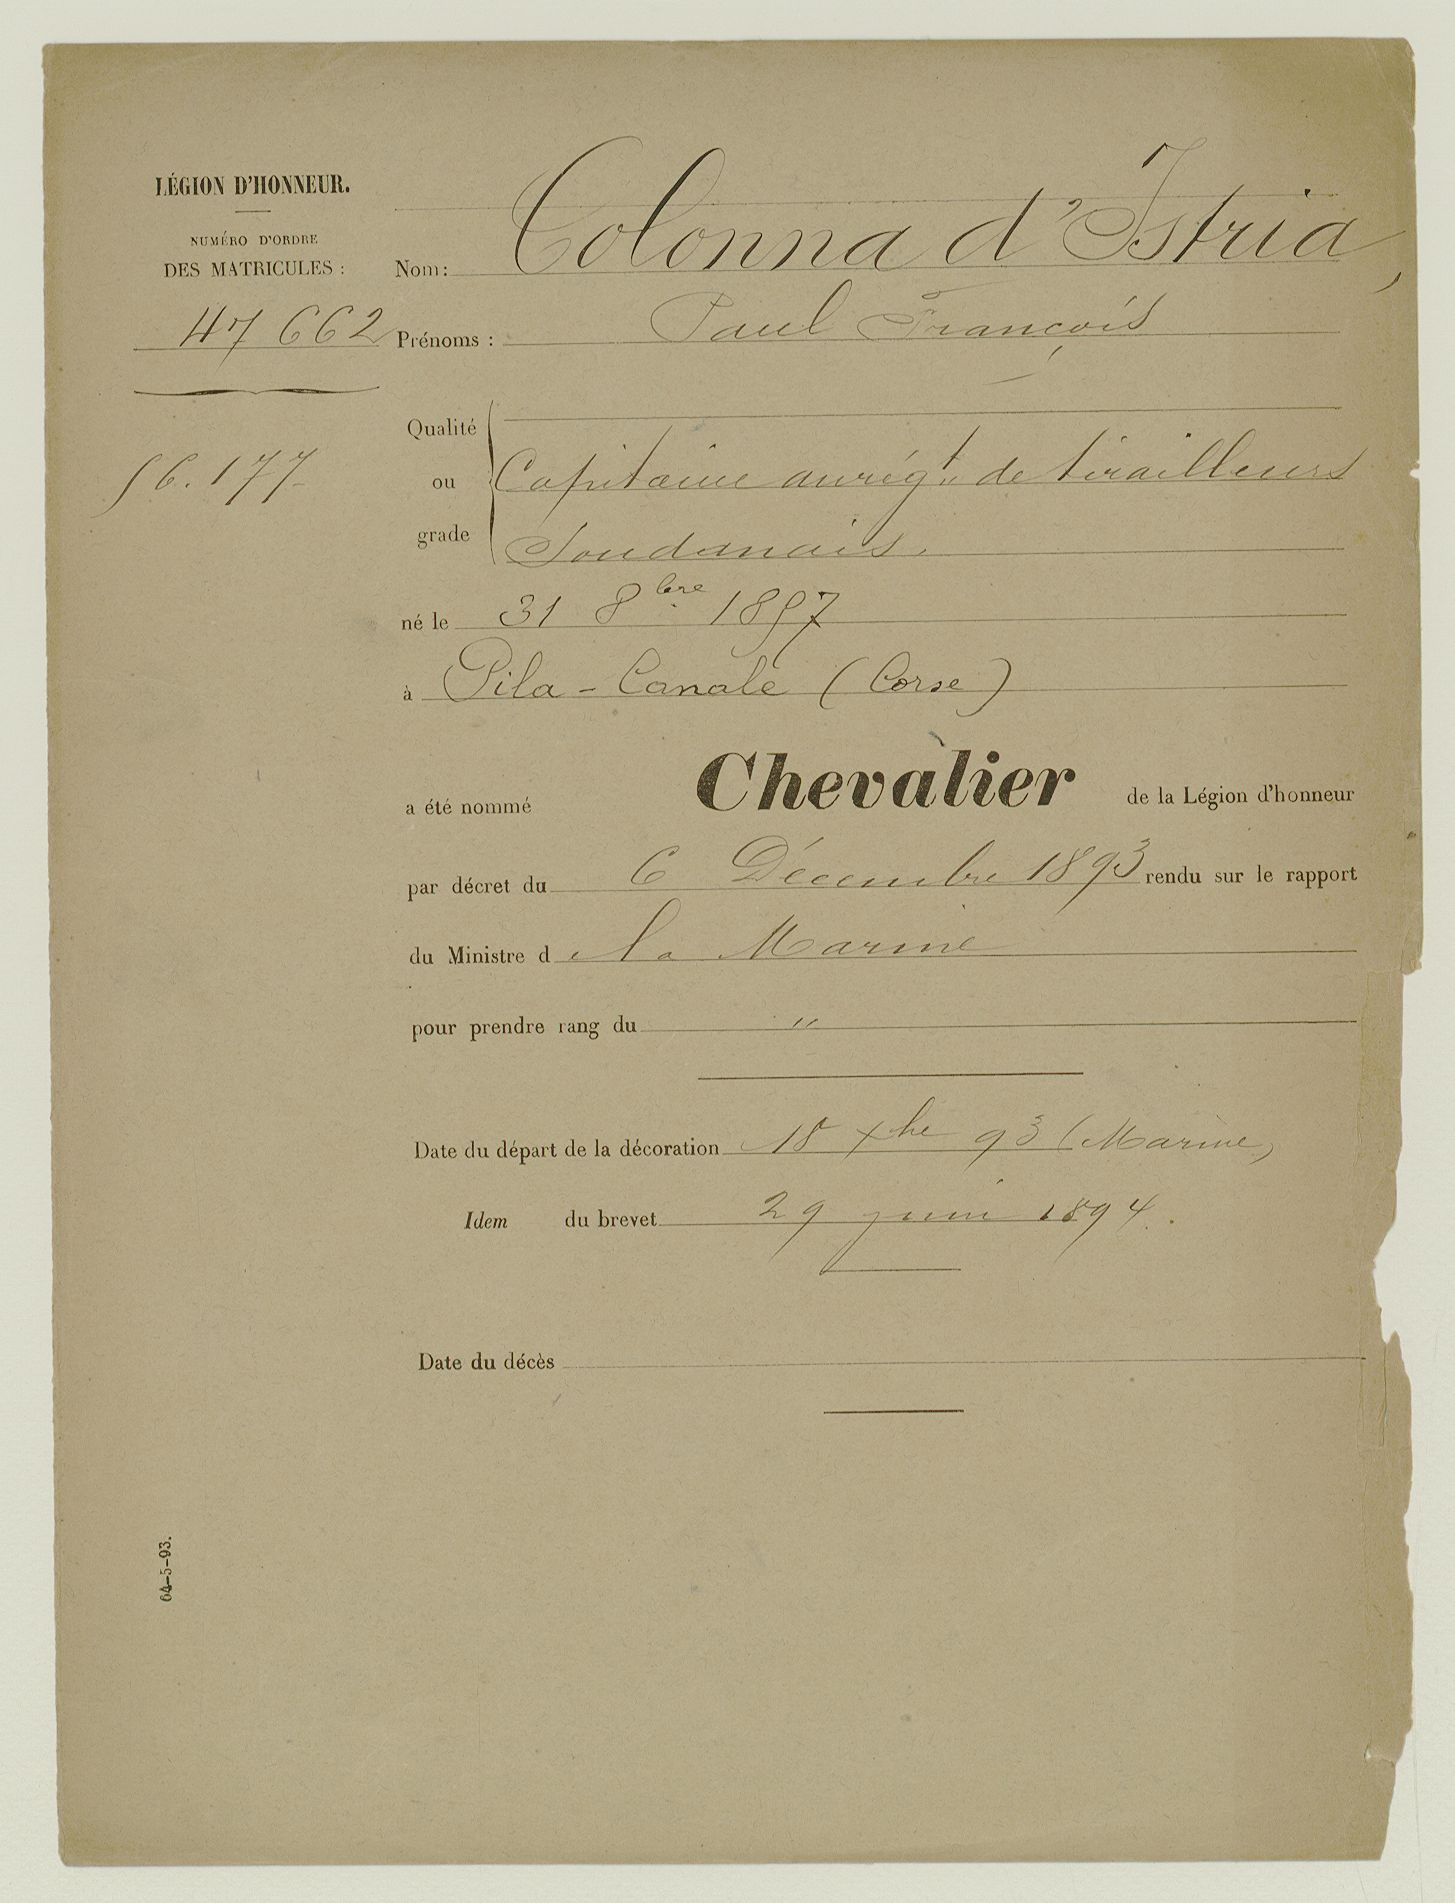 LÉGION D'HONNEUR.
NUMÉRO D'ORDRE
DES MATRICULES :
47 662
56.177
Nom: Colonna d'Istria,
Prénoms : Paul François
Qualité
ou
grade
Capitaine au rég.t de tirailleurs
Soudanais.
né le 31 8bre 1857
à Pila-Canale (Corse)
a été nommé Chevalier de la Légion d'honneur
par décret du 6 Décembre 1893 rendu sur le rapport
du Ministre de la Marine
pour prendre rang du "
Date du départ de la décoration 18 Xbre 93 (Marine)
Idem du brevet 29 juin 1894.
Date du décès
64-5-93.